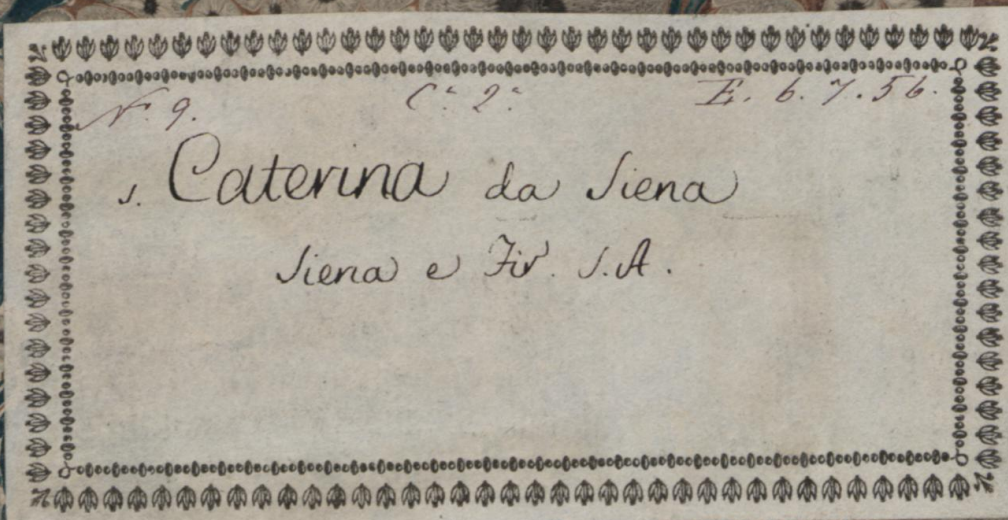 N. 9. C.a 2.a E. 6. 7. 56.
s. Caterina da Siena
Siena e Fir. S.A.